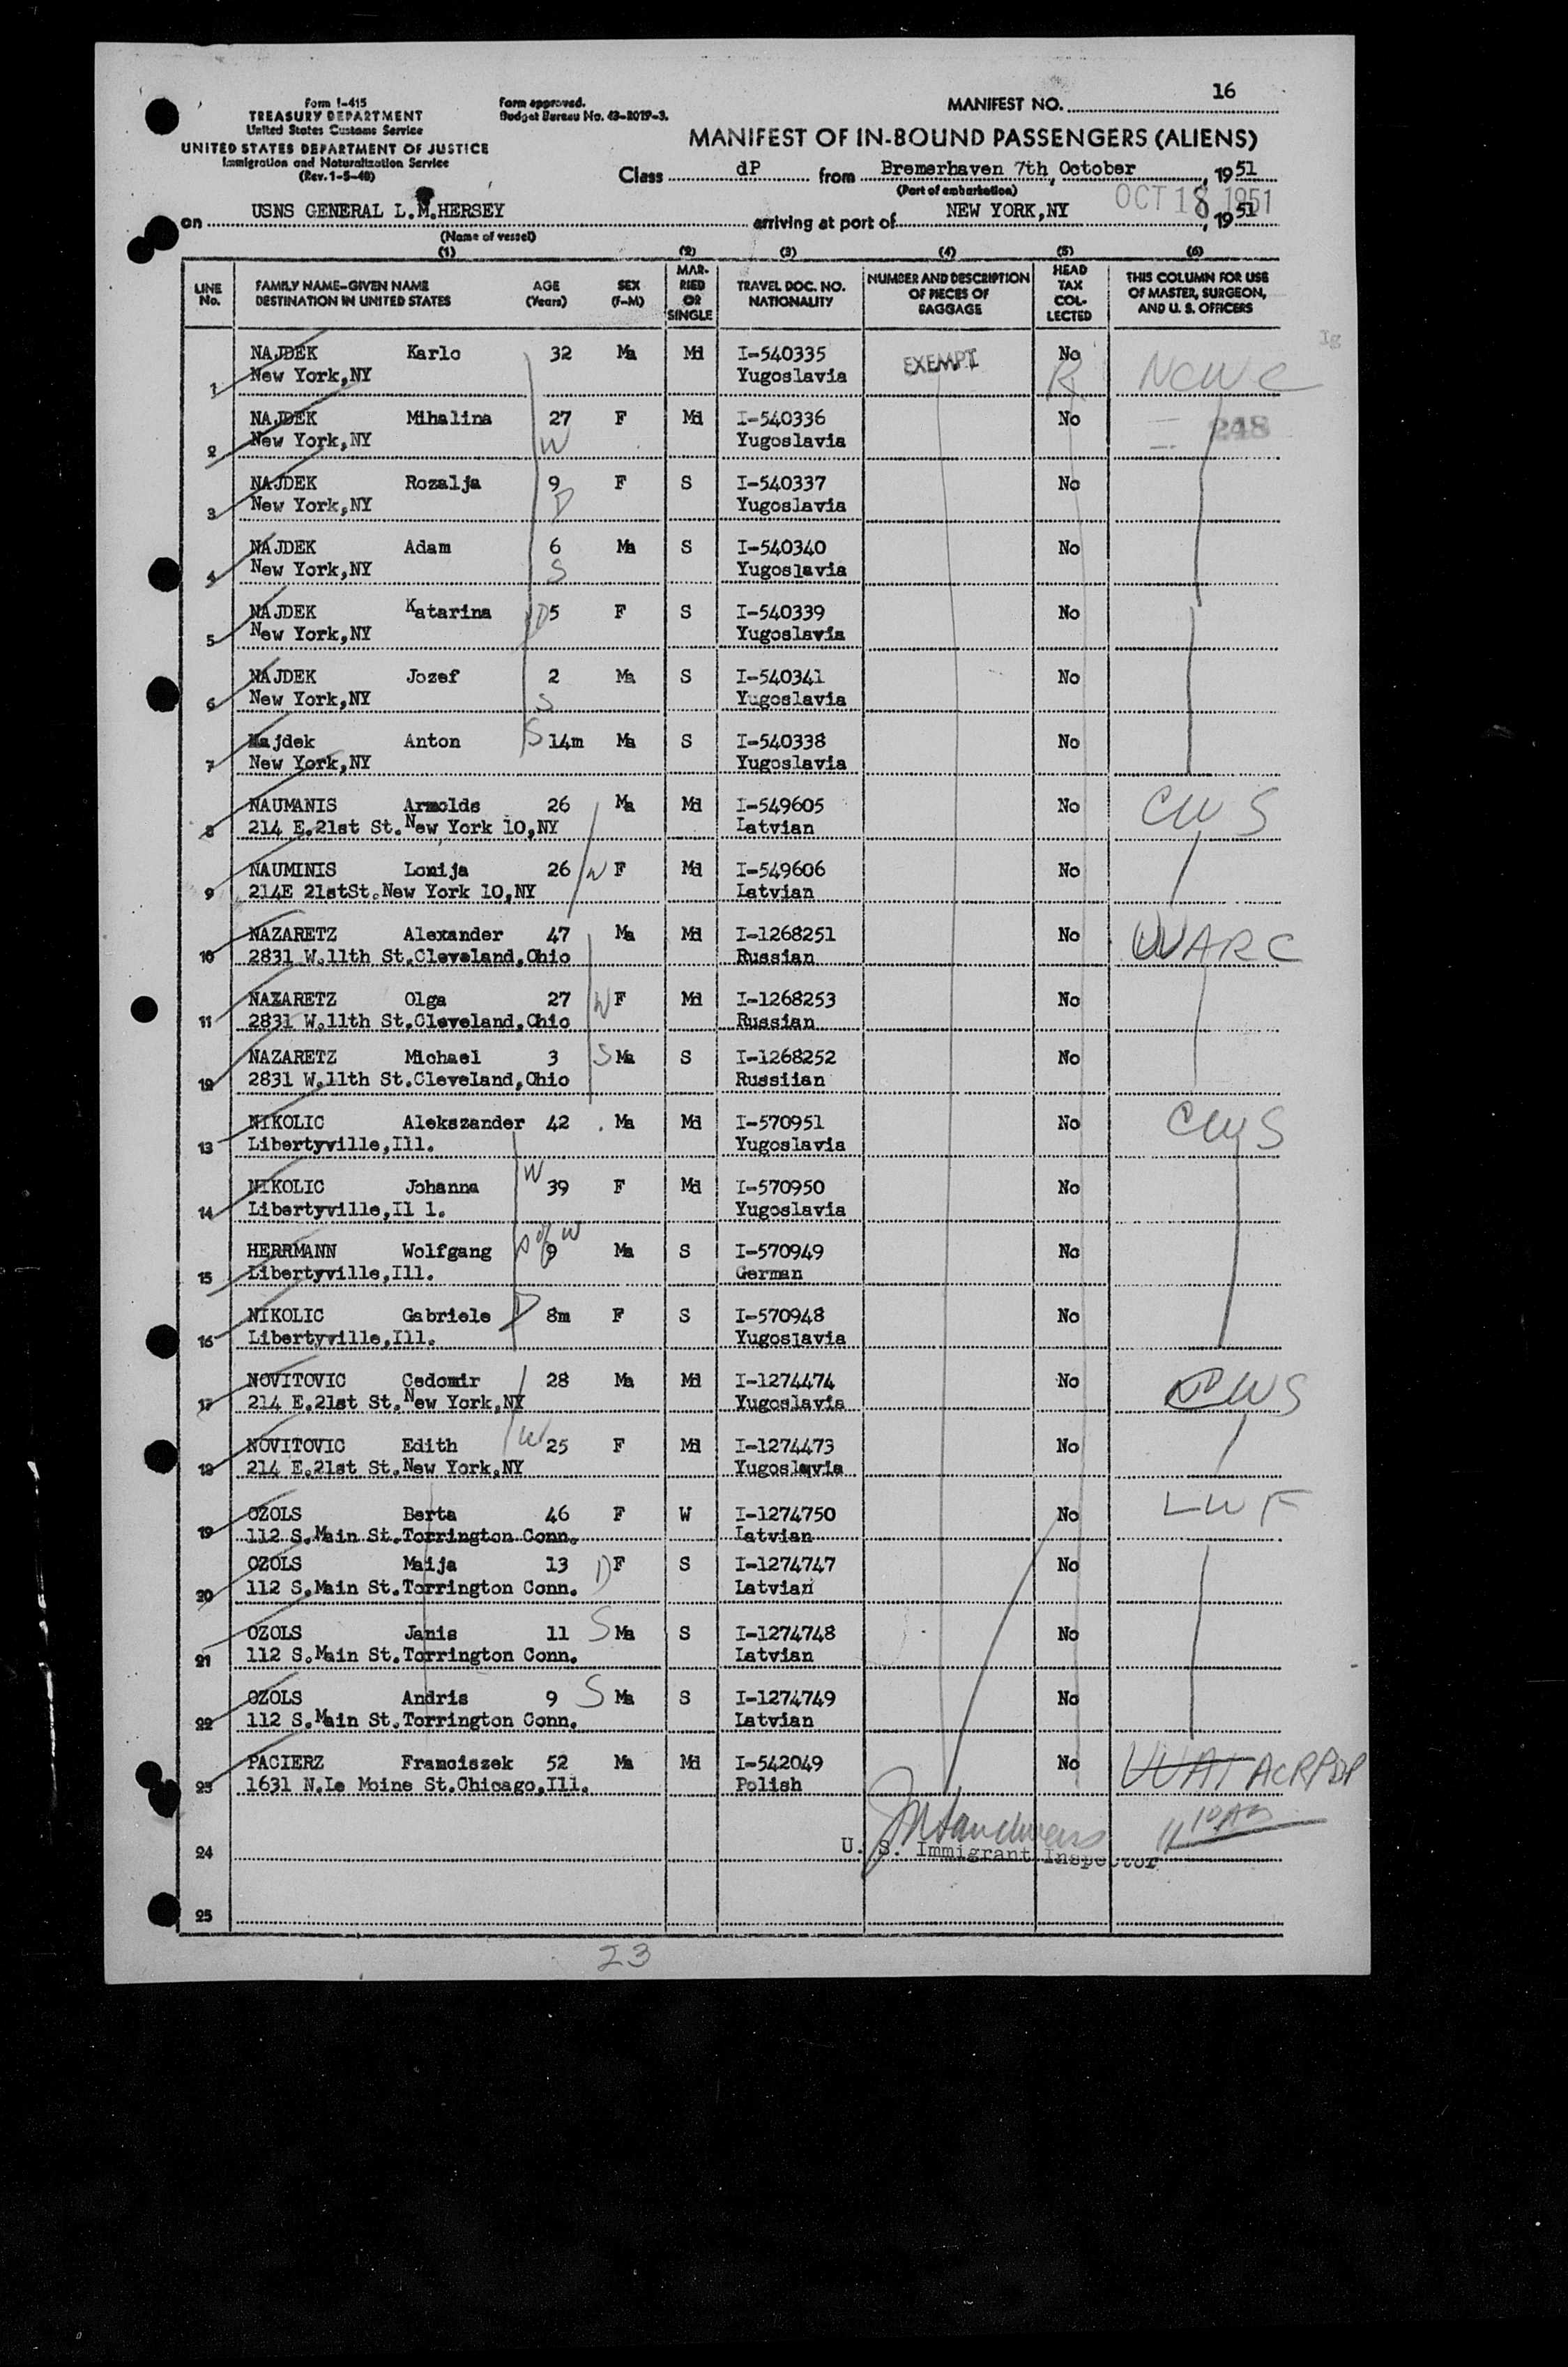 Form I-415
TREASURY DEPARTMENT
United States Customs Service
UNITED STATES DEPARTMENT OF JUSTICE
Immigration and Naturalization Service
(Rev. 1-5-48)
Form approved.
Budget Bureau No. 43-R019-3.
MANIFEST NO. 16
MANIFEST OF IN-BOUND PASSENGERS (ALIENS)
Class dP from Bremerhaven 7th, October, 1951
(Port of embarkation)
on USNS GENERAL L.M.HERSEY arriving at port of NEW YORK,NY OCT 18 1951, 1951
(Name of vessel)
(1) (2) (3) (4) (5) (6)
LINE No. FAMILY NAME-GIVEN NAME DESTINATION IN UNITED STATES AGE (Years) SEX (F-M) MAR-RIED OR SINGLE TRAVEL DOC. NO. NATIONALITY NUMBER AND DESCRIPTION OF PIECES OF BAGGAGE HEAD TAX COL-LECTED THIS COLUMN FOR USE OF MASTER, SURGEON, AND U. S. OFFICERS
Ig
NAJDEK Karlo 32 Ma Md I-540335 EXEMPT No NCWC
1 New York,NY Yugoslavia R
NAJDEK Mihalina 27 F Md I-540336 No 248
2 New York,NY W Yugoslavia
NAJDEK Rozalja 9 F S I-540337 No
3 New York,NY D Yugoslavia
NAJDEK Adam 6 Ma S I-540340 No
4 New York,NY S Yugoslavia
NAJDEK Katarina D 5 F S I-540339 No
5 New York,NY Yugoslavia
NAJDEK Jozef 2 Ma S I-540341 No
6 New York,NY S Yugoslavia
Najdek Anton S 14m Ma S I-540338 No
7 New York,NY Yugoslavia
NAUMANIS Arnolds 26 Ma Md I-549605 No CWS
8 214 E.21st St.New York 10,NY Latvian
NAUMINIS Lonija 26 W F Md I-549606 No
9 214E 21stSt.New York 10,NY Latvian
NAZARETZ Alexander 47 Ma Md I-1268251 No WARC
10 2831 W.11th St.Cleveland,Ohio Russian
NAZARETZ Olga 27 W F Md I-1268253 No
11 2831 W.11th St.Cleveland,Ohio Russian
NAZARETZ Michael 3 S Ma S I-1268252 No
12 2831 W.11th St.Cleveland,Ohio Russiian
NIKOLIC Alekszander 42 Ma Md I-570951 No CWS
13 Libertyville,Ill. Yugoslavia
NIKOLIC Johanna W 39 F Md I-570950 No
14 Libertyville,Il l. Yugoslavia
HERRMANN Wolfgang S of W 9 Ma S I-570949 No
15 Libertyville,Ill. German
NIKOLIC Gabriele D 8m F S I-570948 No
16 Libertyville,Ill. Yugoslavia
NOVITOVIC Cedomir 28 Ma Md I-1274474 No CWS
17 214 E.21st St.New York,NY Yugoslavia
NOVITOVIC Edith W 25 F Md I-1274473 No
18 214 E.21st St.New York,NY Yugoslavia
OZOLS Berta 46 F W I-1274750 No LWF
19 112 S.Main St.Torrington Conn. Latvian
OZOLS Maija 13 D F S I-1274747 No
20 112 S.Main St.Torrington Conn. Latvian
OZOLS Janis 11 S Ma S I-1274748 No
21 112 S.Main St.Torrington Conn. Latvian
OZOLS Andris 9 S Ma S I-1274749 No
22 112 S.Main St.Torrington Conn. Latvian
PACIERZ Franciszek 52 Ma Md I-542049 No ACRPDP
23 1631 N.Le Moine St.Chicago,Ill. Polish
24 U. S. Immigrant Inspector
25
23